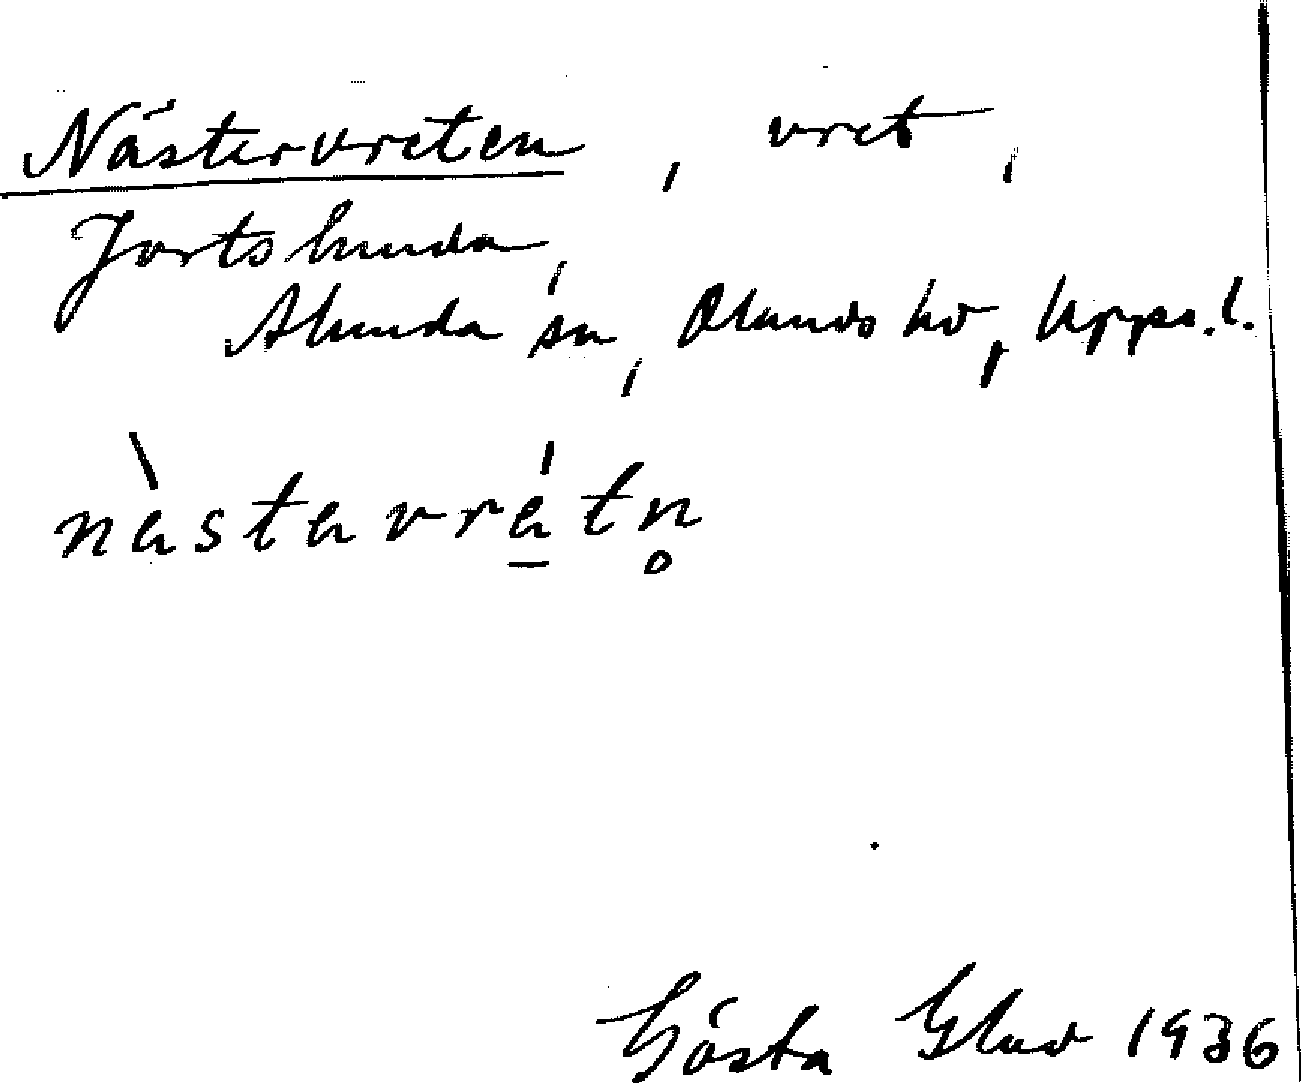 Nästervreten, vret,
Jortshunda,
Alunda sn, Olands hd, Upps.l.
nàstavrátn̥
Gösta Glad 1936